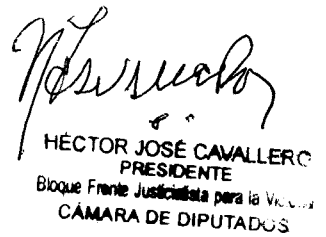 HÉCTOR JOSÉ CAVALLERO
PRESIDENTE
Bloque Frente Justicialista para la
CÁMARA DE DIPUTADOS